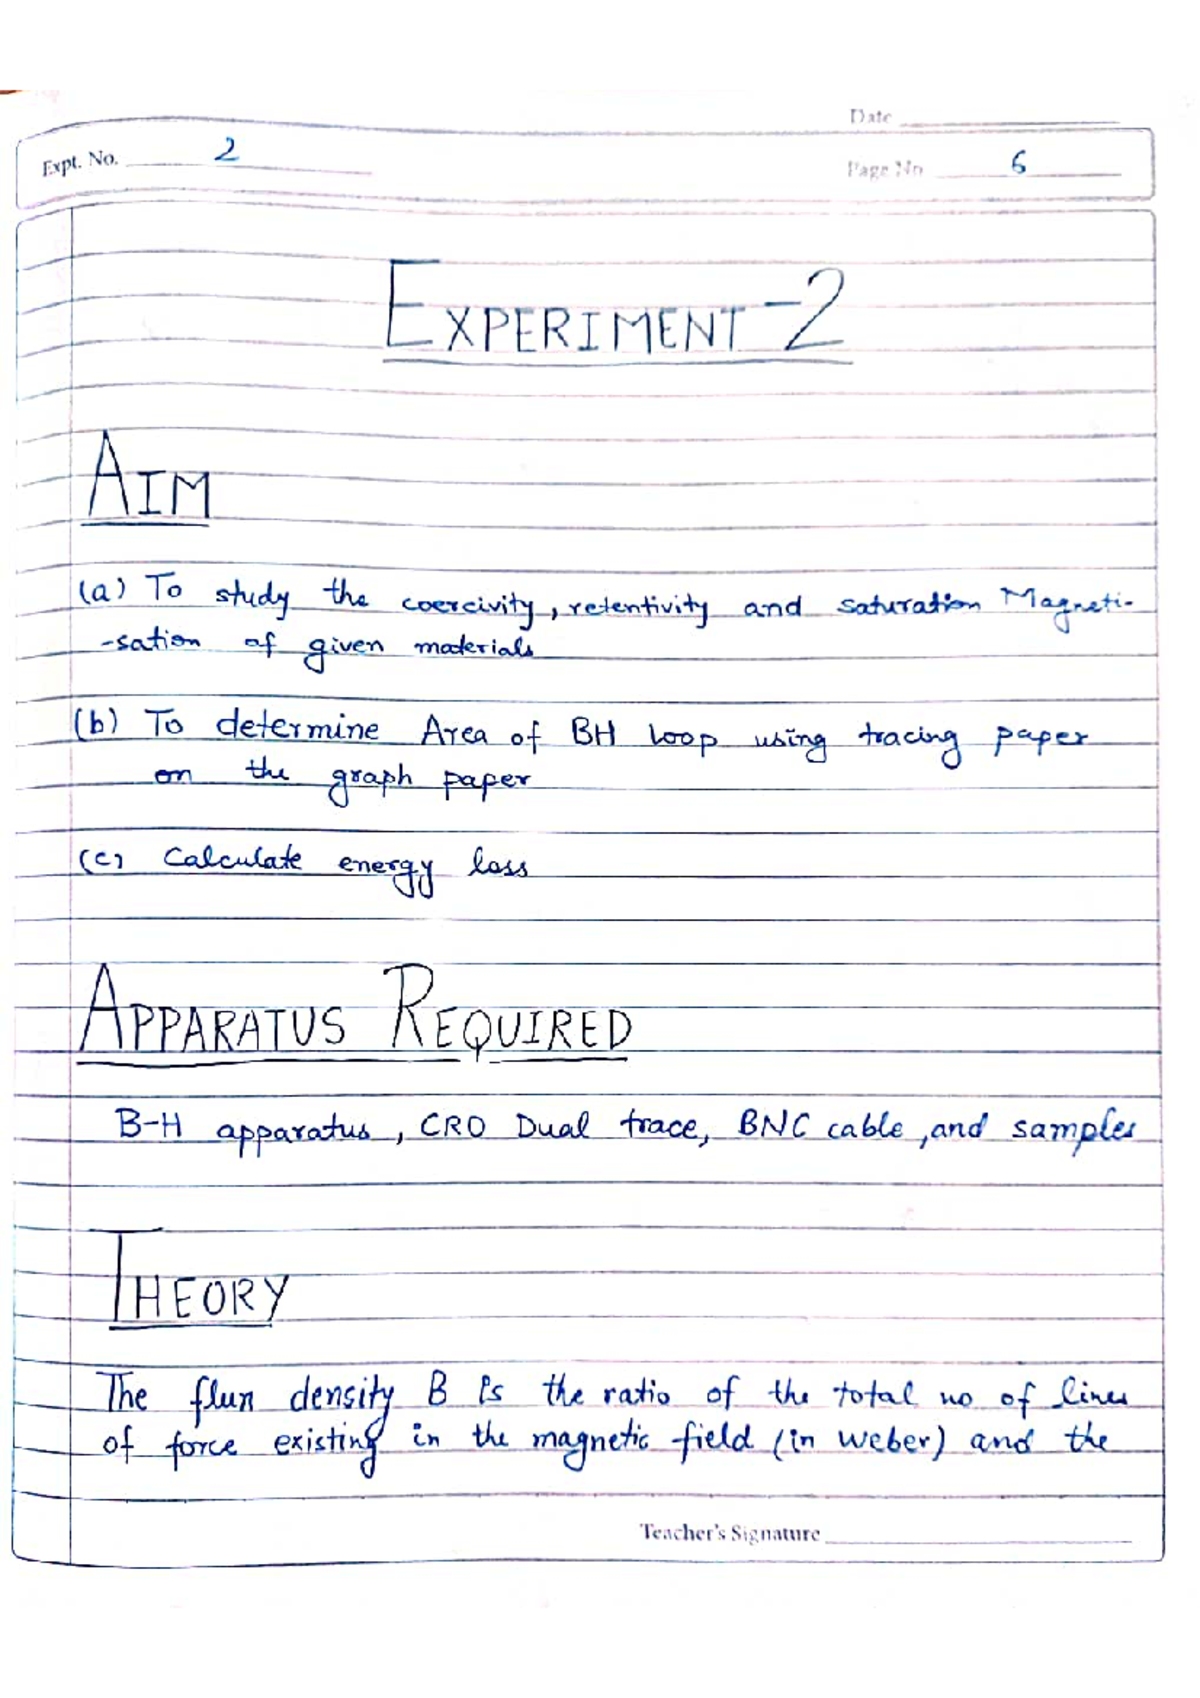 Date
Expt. No. 2
Page No 6
EXPERIMENT-2
AIM
(a) To study the coercivity, retentivity and saturation Magneti-
-sation of given materials
(b) To determine Area of BH loop using tracing paper
on the graph paper
(c) Calculate energy loss
APPARATUS REQUIRED
B-H apparatus, CRO Dual trace, BNC cable, and samples
THEORY
The flux density B is the ratio of the total no of lines
of force existing in the magnetic field (in weber) and the
Teacher's Signature